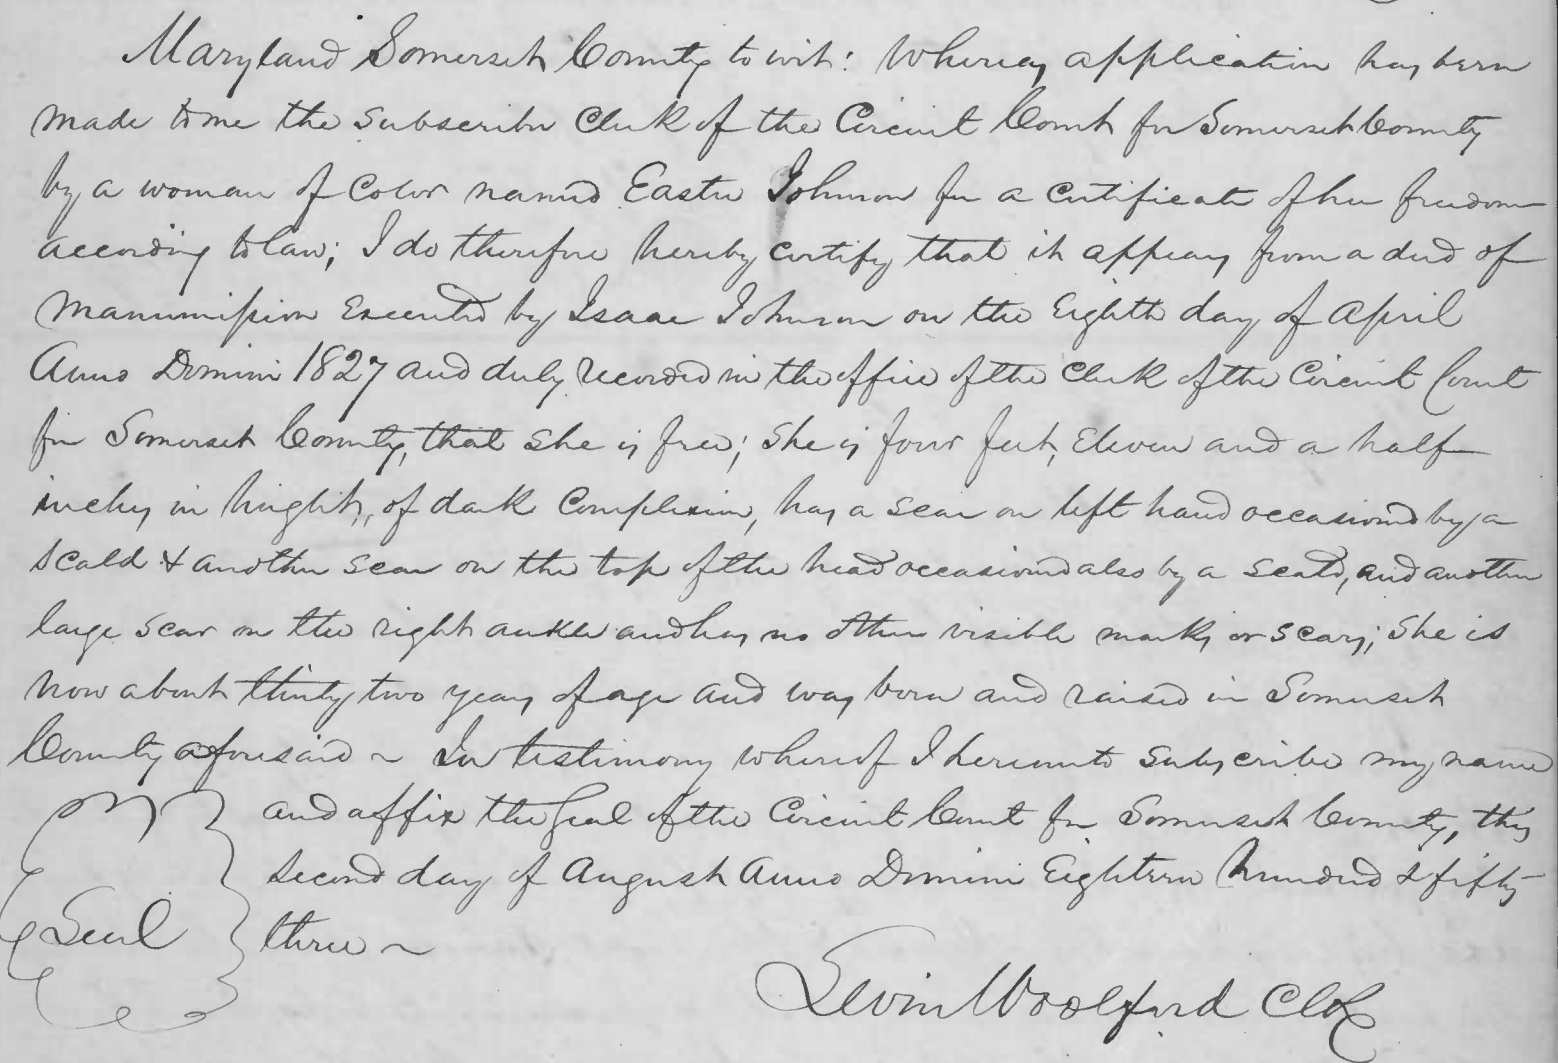 Maryland Somerset County to wit: Whereas application has been
made to me the Subscriber Clerk of the Circuit Court for Somerset County
by a woman of Color named Easter Johnson for a certificate of her freedom
according to law; I do therefore hereby certify that it appears from a deed of
Manumission Executed by Isaac Johnson on the Eighth day of April
Anno Domini 1827 and duly recorded in the office of the Clerk of the Circuit Court
for Somerset County, that she is free; She is four feet, Eleven and a half
inches in height, of dark Complexion, has a scar on left hand occasioned by a
scald & another scar on the top of the head occasioned also by a scald, and another
large scar on the right ankle and has no other visible marks or scars; She is
now about thirty two years of age and was born and raised in Somerset
County aforesaid ~ In testimony whereof I hereunto subscribe my name
and affix the Seal of the Circuit Court for Somerset County, this
second day of August Anno Domini Eighteen hundred & fifty
Seal three ~
Levin Woolford Clk